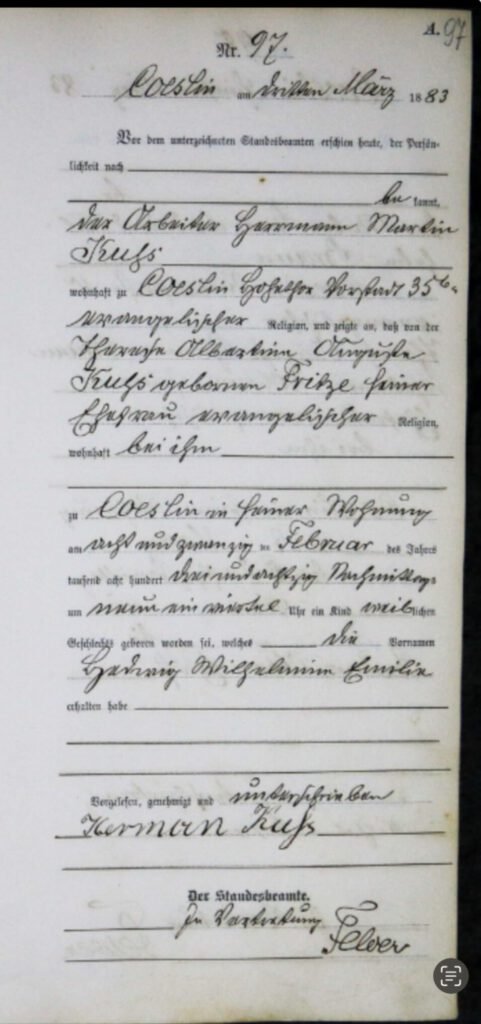 A. 97
Nr. 97.
Coeslin am dritten März 1883
Vor dem unterzeichneten Standesbeamten erschien heute, der Persön-
lichkeit nach
be kannt,
der Arbeiter Herrmann Martin
Kuhs
wohnhaft zu Coeslin Hohethor Vorstadt 35
evangelischer Religion, und zeigte an, daß von der
Therese Albertine Auguste
Kuhs gebornen Fritze seiner
Ehefrau evangelischer Religion,
wohnhaft bei ihm
zu Coeslin in seiner Wohnung
am acht und zwanzig ten Februar des Jahres
tausend acht hundert drei und achtzig Nachmittags
um neun ein viertel Uhr ein Kind weiblichen
Geschlechts geboren worden sei, welches die Vornamen
Hedwig Wilhelmine Emilie
erhalten habe
Vorgelesen, genehmigt und unterschrieben
Herman Kuhs
Der Standesbeamte.
In Vertretung